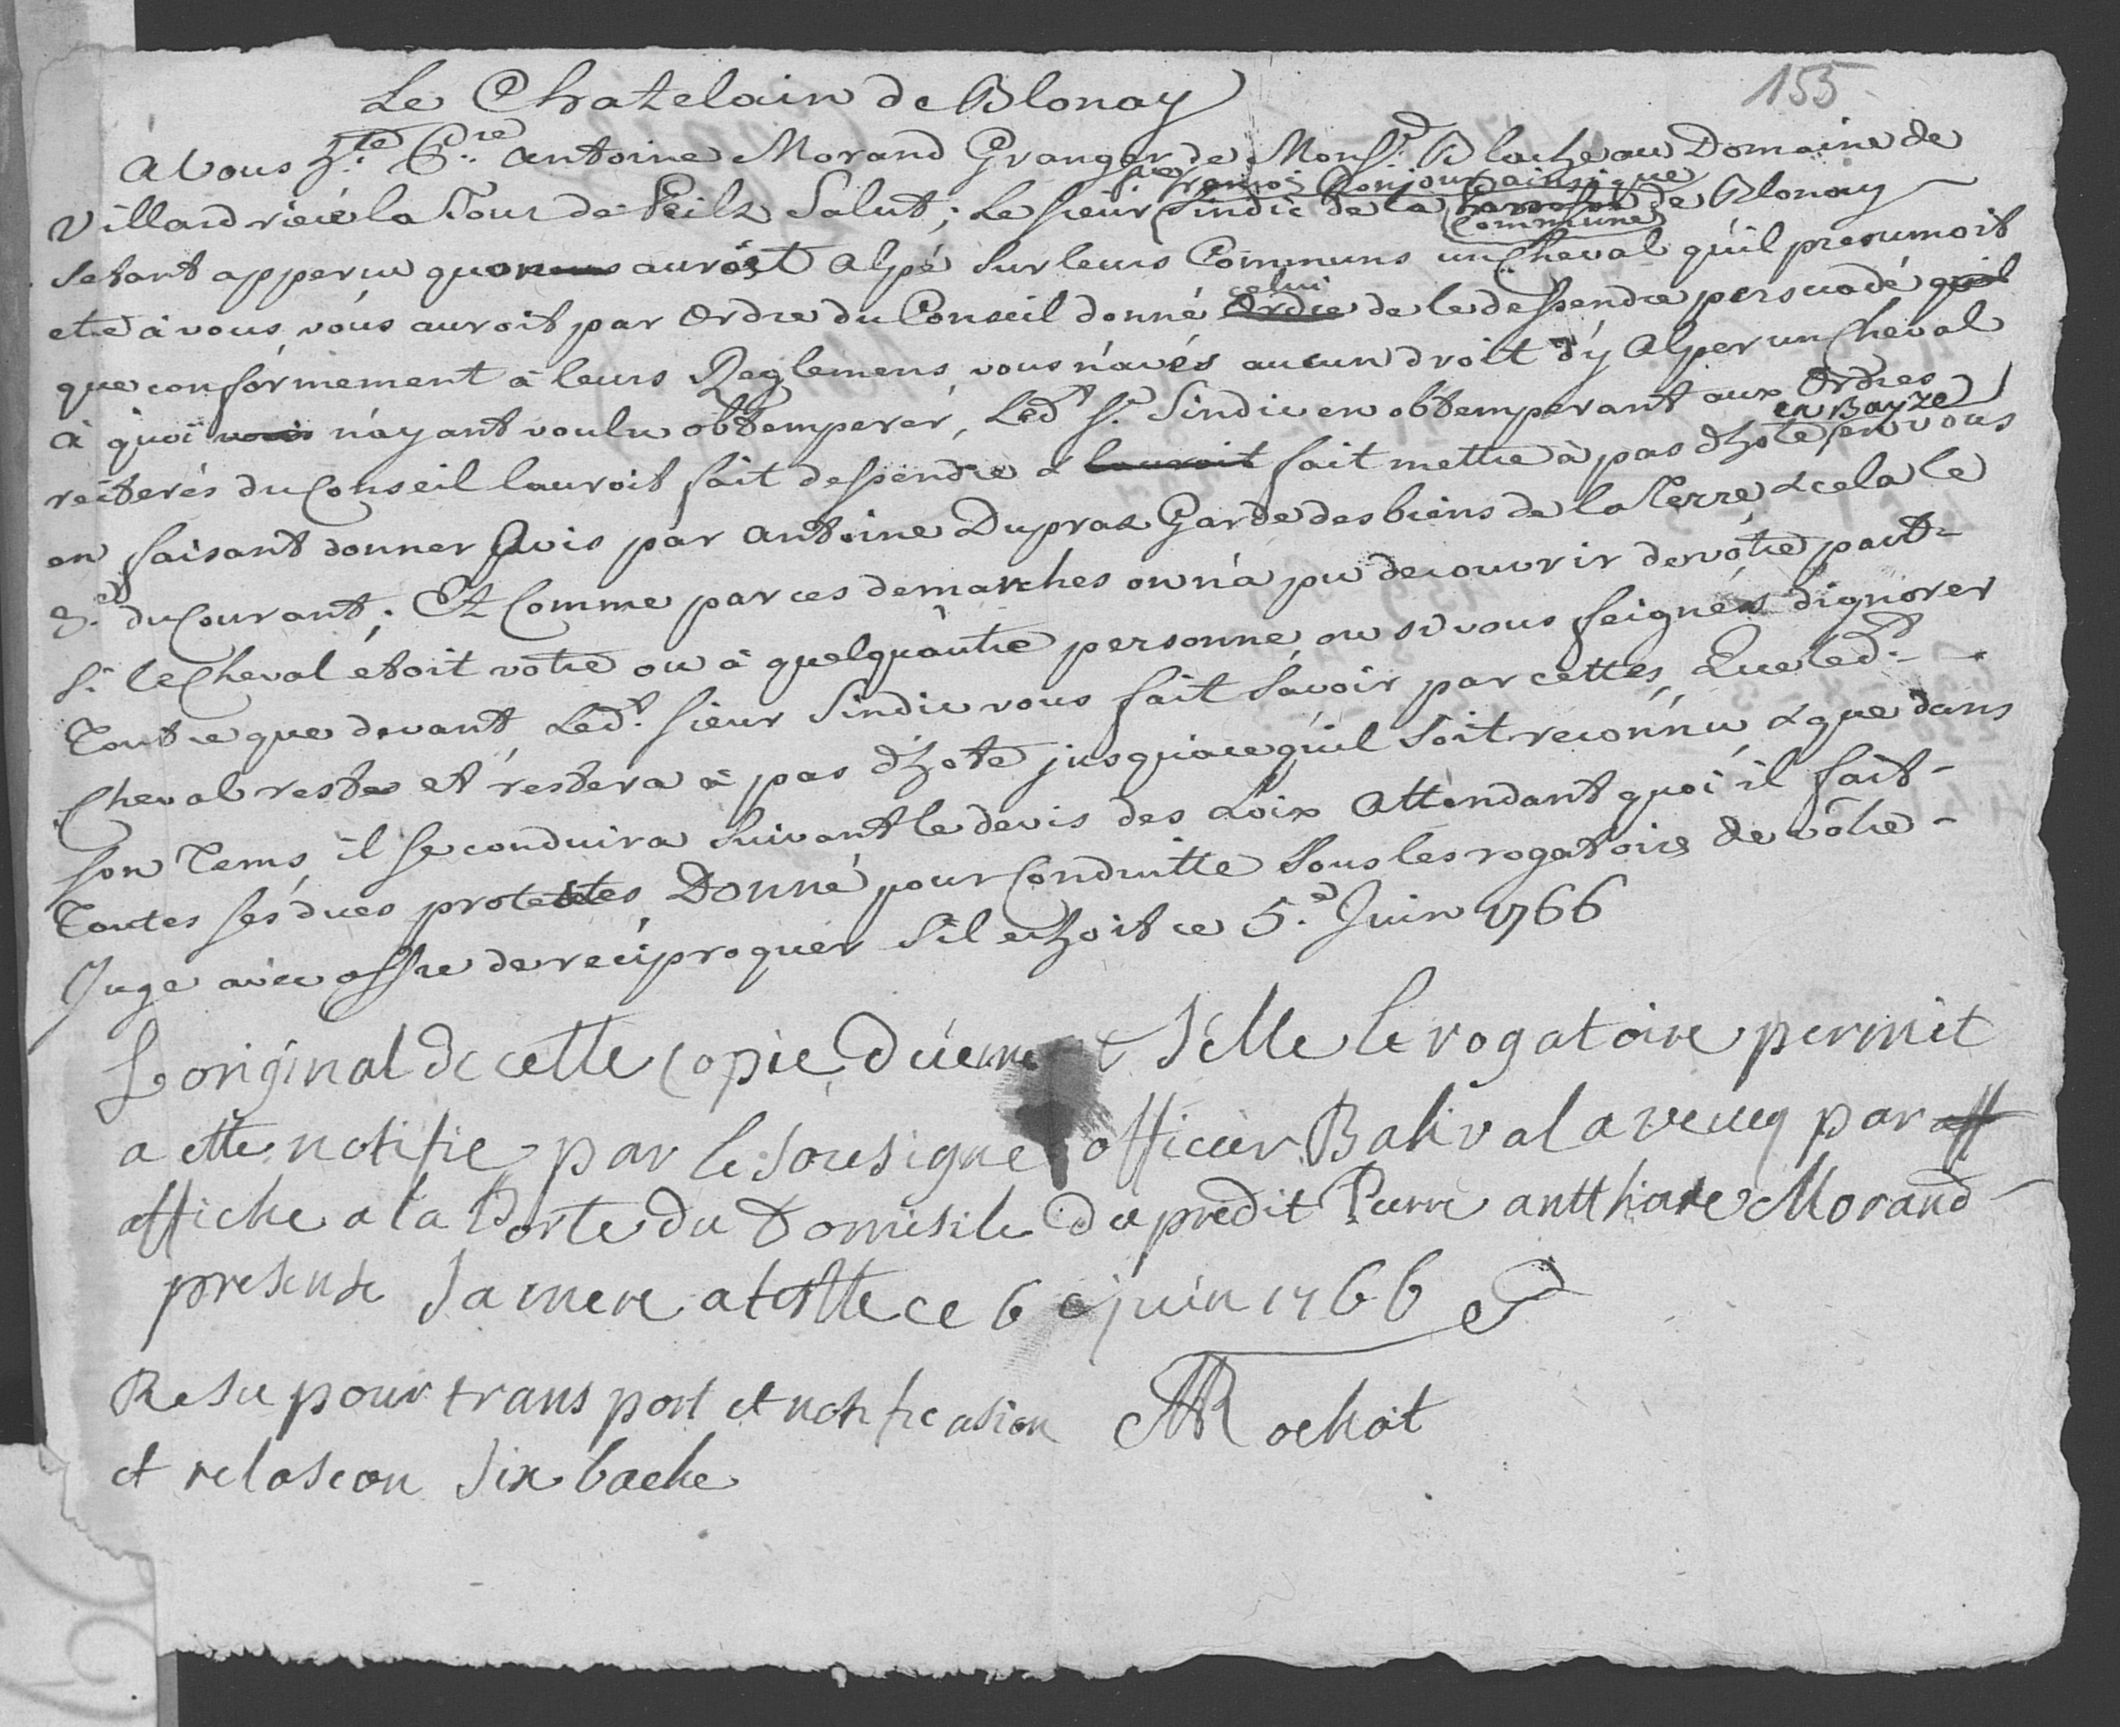 155
Le Chatelain de Blonay
A Vous h.te P.re Antoine Morand Granger de Mons.r Blache au Domaine de
François Conjour ainsique
Villard riére la Tour de Peilz Salut; Le sieur Sindic de la Commune de Blonay
setant apperçu quon auroit Alpé sur leurs Communs un Cheval qu'il presumoit
etre à vous, vous auroit par Ordre du Conseil donné celui de le dessendre persuadé quil
que conformement à leurs Reglemens vous n'avés aucun droit d'y Alper un Cheval
à quoi vous n'ayant voulu obtemperer, Led.t S.r Sindic en obtemperant aux Ordres
reiterés du Conseil lauroit fait dessendre & lauroit fait mettre à pas d'hote en Bayze en vous
en faisant donner Avis par Antoine Dupraz Garde des biens de la Terre, & cela le
3.e du Courant; Et Comme par ces demarches on n'a pu decouvrir de vôtre part
si le Cheval étoit votre ou à quelqu'autre personne, ou si vous feignés d'ignorer
Tout ce que devant, Led.t sieur Sindic vous fait savoir par cettes, Que led.t
Cheval reste et restera à pas d'hote jusqu'à ce qu'il soit reconnu & que dans
son Tems, il se conduira suivant le devis des Loix Attendant quoi il fait
Toutes ses dues protestes Donné pour Conduitte Sous les rogatoires de vôtre
Juge avec offre de reciproquer s'il echoit ce 5.e Juin 1766
L'original de cette copie Duem & selle le rogatoire permit
a ette notifie par le sousigne officier Balival avecq par aff
affiche a la Porte du Domisile du predit Pierre antthoine Morand
presente sa mere atestte ce 6 e juin 1766
Resu pour transport et notificasion MRochat
et relascon six bache